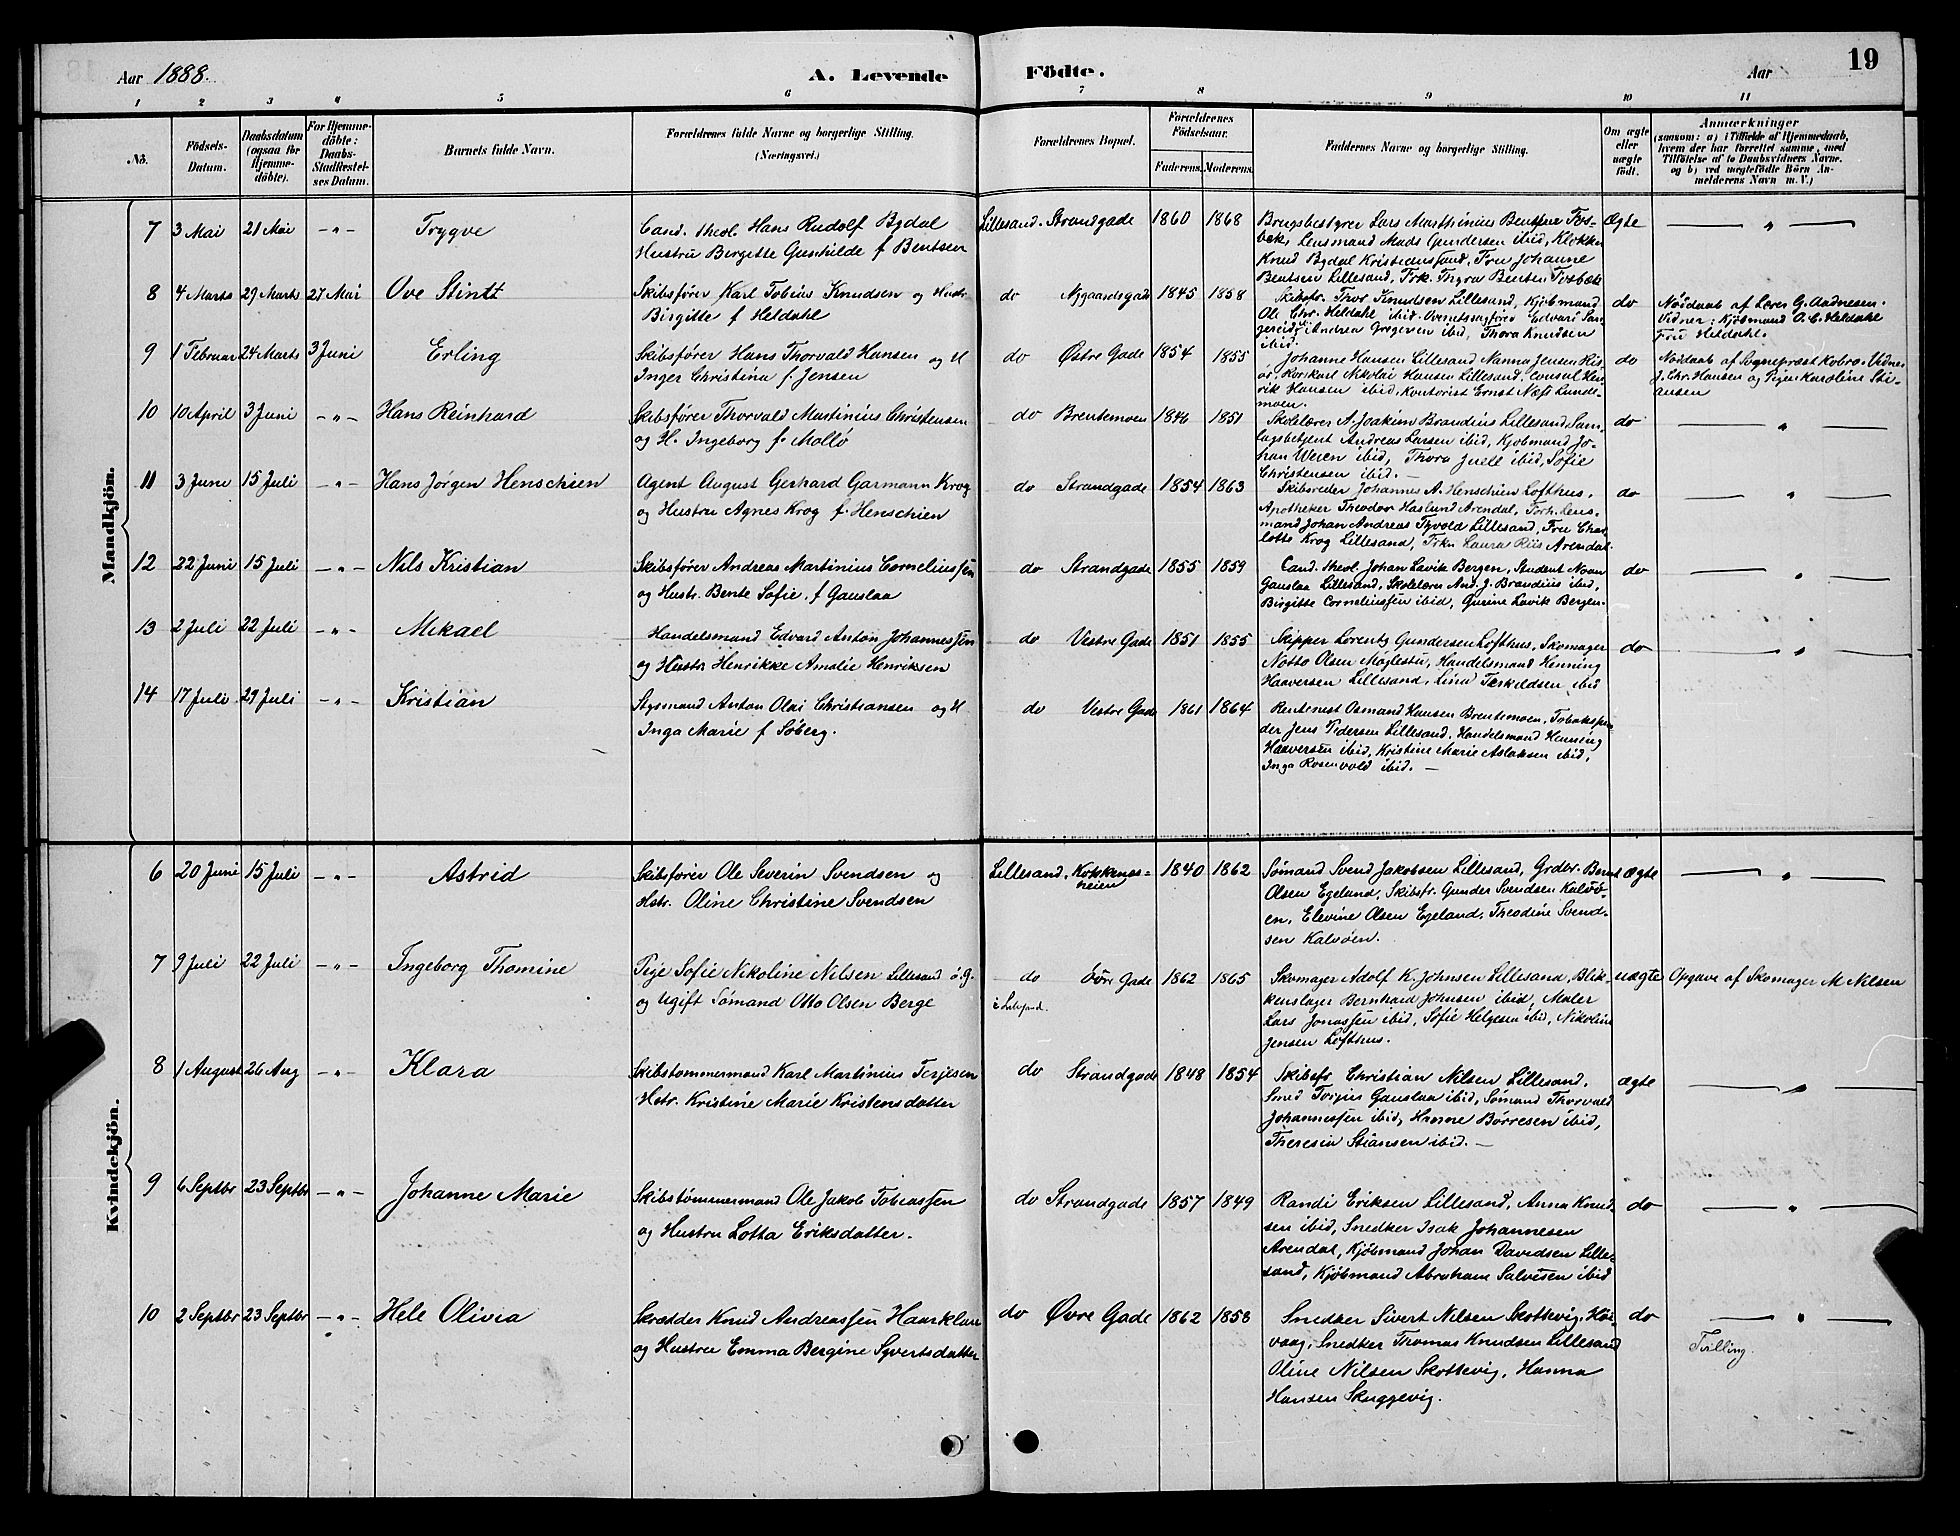 Aar 1888.
A. Levende Födte.
Aar
19
1 2 3 4 5 6 7 8 9 10 11
No.
Födsels-Datum.
Daabsdatum (ogsaa for Hjemme-döbte).
For Hjemme-döbte: Daabs-Stadfæstel-ses Datum.
Barnets fulde Navn.
Forældrenes fulde Navne og borgerlige Stilling.
(Næringsvei.)
Forældrenes Bopæl.
Forældrenes Födselsaar.
Faderens. Moderens.
Faddernes Navne og borgerlige Stilling.
Om ægte eller uægte födt.
Anmærkninger
(saasom: a) i Tilfælde af Hjemmedaab, hvem der har forrettet samme, med Tilföielse af to Daabsvidners Navne. og b) ved uægtefödte Börn Anmelderens Navn m. V.)
Mandkjön.
7 3 Mai 21 Mai -"- Trygve
Cand. theol. Hans Rudolf Bydal
Hustru Birgitte Gunhilde f Bentsen
Lillesand. Strandgade 1860 1868
Brugsbestyrer Lars Marthinius Bentsen Tvs-
bek, Lensmand Mads Gundersen ibid, Klokker
Knud Bydal Kristiansand, Fru Johanne
Bentsen Lillesand, Frk. Thyra Bentsen Tvsbek
Ægte
8 4 Marts 29 Marts 27 Mai Ove Stindt
Skibsfører Karl Tobias Knudsen og Hustr
Birgitte f Heldahl
do Nygaardsgade 1845 1858
Skibsfr. Thor Knudsen Lillesand, Kjöbmand
Ole Chr. Heldahl ibid. Overretssagfører Edvard
ibid Andrea Gregersen ibid, Thora Knudsen
ibid.
do
Nøidaab af Lærer G. Aadnesen.
Vidner: Kjöbmand O. C. Heldahl
Fru Heldahl.
9 1 Februar 24 Marts 3 Juni Erling
Skibsfører Hans Thorvald Hansen og H
Inger Christina f. Jensen
do Østre Gade 1854 1855
Johanne Hansen Lillesand Nanna Jensen Ris-
ör, Nikolai Hansen Lillesand, Consul Hen-
rik Hansen ibid, Kontorist Ernst Næss Lunde-
moen.
do
Nødaab af Sogneprest Kobro. Vidner
J. Chr. Hansen og Pigen Karoline Sti-
ansen
10 10 April 3 Juni -"- Hans Reinhard
Skibsfører Thorvald Martinius Christensen
og H. Ingeborg f. Mollö
do Brentemoen 1846 1851
Skolelærer A. Joakim Brandius Lillesand, Sam-
lagsbetjent Andreas Larsen ibid, Kjöbmand Jo-
han Weien ibid, Thora Juell ibid, Sofie
Christensen ibid. —
do
11 3 Juni 15 Juli -"- Hans Jørgen Henschien
Agent August Gerhard Garmann Krog
og Hustru Agnes Krog f. Henschien
do Strandgade 1854 1863
Skibsreder Johannes A. Henschien Lofthus.
Apotheker Theodor Haslund Arendal, Forh. Lens-
mand Johan Andreas Tyvold Lillesand, Fru Char-
lotte Krog Lillesand, Frkn Laura Riis Arendal.
do
12 22 Juni 15 Juli -"- Nils Kristian
Skibsfører Andreas Martinius Corneliussen
og Hustr. Bente Sofie. f Gauslaa
do Strandgade 1855 1859
Cand. theol. Johan Lavik Bergen, Student
Gauslaa Lillesand, Skolelærer And. J. Brandius ibid,
Birgitte Corneliussen ibid, Gurine Lavik Bergen.
do
13 2 Juli 22 Juli -"- Mikael
Handelsmand Edvard Anton Johannessen
og Hustr Henrikke Amalie Henriksen
do Vestre Gade 1851 1855
Skipper Lorentz Gundersen Lofthus, Skomager
Notto Olsen Møglestu, Handelsmand Henning
Haaversen Lillesand, Lina Terkildsen ibid
do
14 17 Juli 29 Juli -"- Kristian
Stysmand Anton Olai Christiansen og H
Inga Marie f Søberg.
do Vestre Gade 1861 1864
Rentenist Osmund Hansen Brentemoen, Tobakspin-
der Jens Pedersen Lillesand, Handelsmand Henning
Haaversen ibid, Kristine Marie Aslaksen ibid,
Inga Rosenvold ibid. —
Kvindekjön.
6 20 Juni 15 Juli -"- Astrid
Skibsfører Ole Severin Svendsen og
Hstr. Oline Christine Svendsen
Lillesand. Kokkenes-
heien 1840 1862
Sømand Svend Jakobsen Lillesand, Grdbr. Bernt
Olsen Egeland, Skibsfr. Gunder Svendsen Kalvö-
en, Elevine Olsen Egeland, Theodine Svend-
sen Kalvöen.
ægte
7 9 Juli 22 Juli -"- Ingeborg Thomine
Pige Sofie Nikoline Nilsen Lillesand ö. G.
og Ugift Sømand Otto Olsen Berge
do Øvre Gade 1862 1865
Skomager Adolf K. Johnsen Lillesand, Blik-
kenslager Bernhard Johnsen ibid, Maler
Lars Jonassen ibid, Sofie Helgesen ibid, Nikoline
Jensen Lofthus.
uægte Opgave af Skomager M Nilsen
8 1 August 26 Aug -"- Klara
Skibstømmermand Karl Martinius Terjesen
Hstr. Kristine Marie Kristensdatter
do Strandgade 1848 1854
Skibsfr. Christian Nilsen Lillesand,
Smed Torjus Gauslaa ibid, Sømand Thorvald
Johannessen ibid, Hanne Børresen ibid,
Theresia Stiansen ibid. —
ægte
9 6 Septbr 23 Septbr -"- Johanne Marie
Skibstømmermand Ole Jakob Tobiassen
og Hustru Lotta Eriksdatter.
do Strandgade 1857 1849
Randi Eriksen Lillesand, Anna Knud-
sen ibid, Snedker Isak Johannesen
Arendal, Kjöbmand Johan Davidsen Lille-
sand, Kjöbmand Abraham Salvesen ibid
do
10 2 Septbr 23 Septbr -"- Hele Olivia
Skrædder Knud Andreassen Haarklau
og Hustru Emma Bergine Syvertsdatter
do Øvre Gade 1862 1858
Snedker Sivert Nilsen Skottevig, Hös-
vaag, Snedker Thomas Knudsen Lillesand
Oline Nilsen Skottevig, Hanna
Hansen Skuggevig.
do
Tvilling.